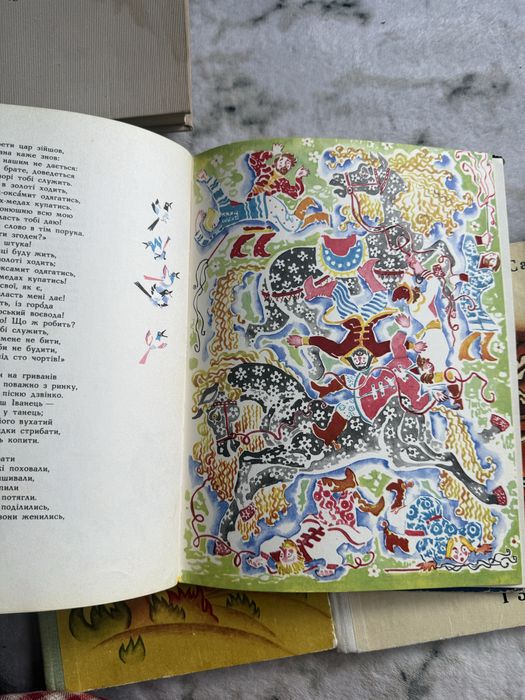 ети цар зійшов,
ана каже знов:
нашим не дається:
брате, доведеться
орі тобі служить.
в золоті ходить,
-оксамит одягатись,
х-медах купатись.
онюшню всю мою
ласть тобі даю!
слово в тім порука.
ти згоден?»
штука!
ці буду жить,
золоті ходить;
ксамит одягатись,
медах купатись!
свої, як є,
ласть мені дає!
ту, із горо́да
рський воєвода!
о! Що ж робить?
бі служить,
мене не бити,
би не будити,
від сто чортів!»
и на гриванів
поважно з ринку,
пісню дзвінко.
ш Іванець —
у танець;
його вухатий
дки стрибати,
ь копити.
ати
кі поховали,
шивали,
пили
потягли.
поділились,
вони женились,
Са
І З